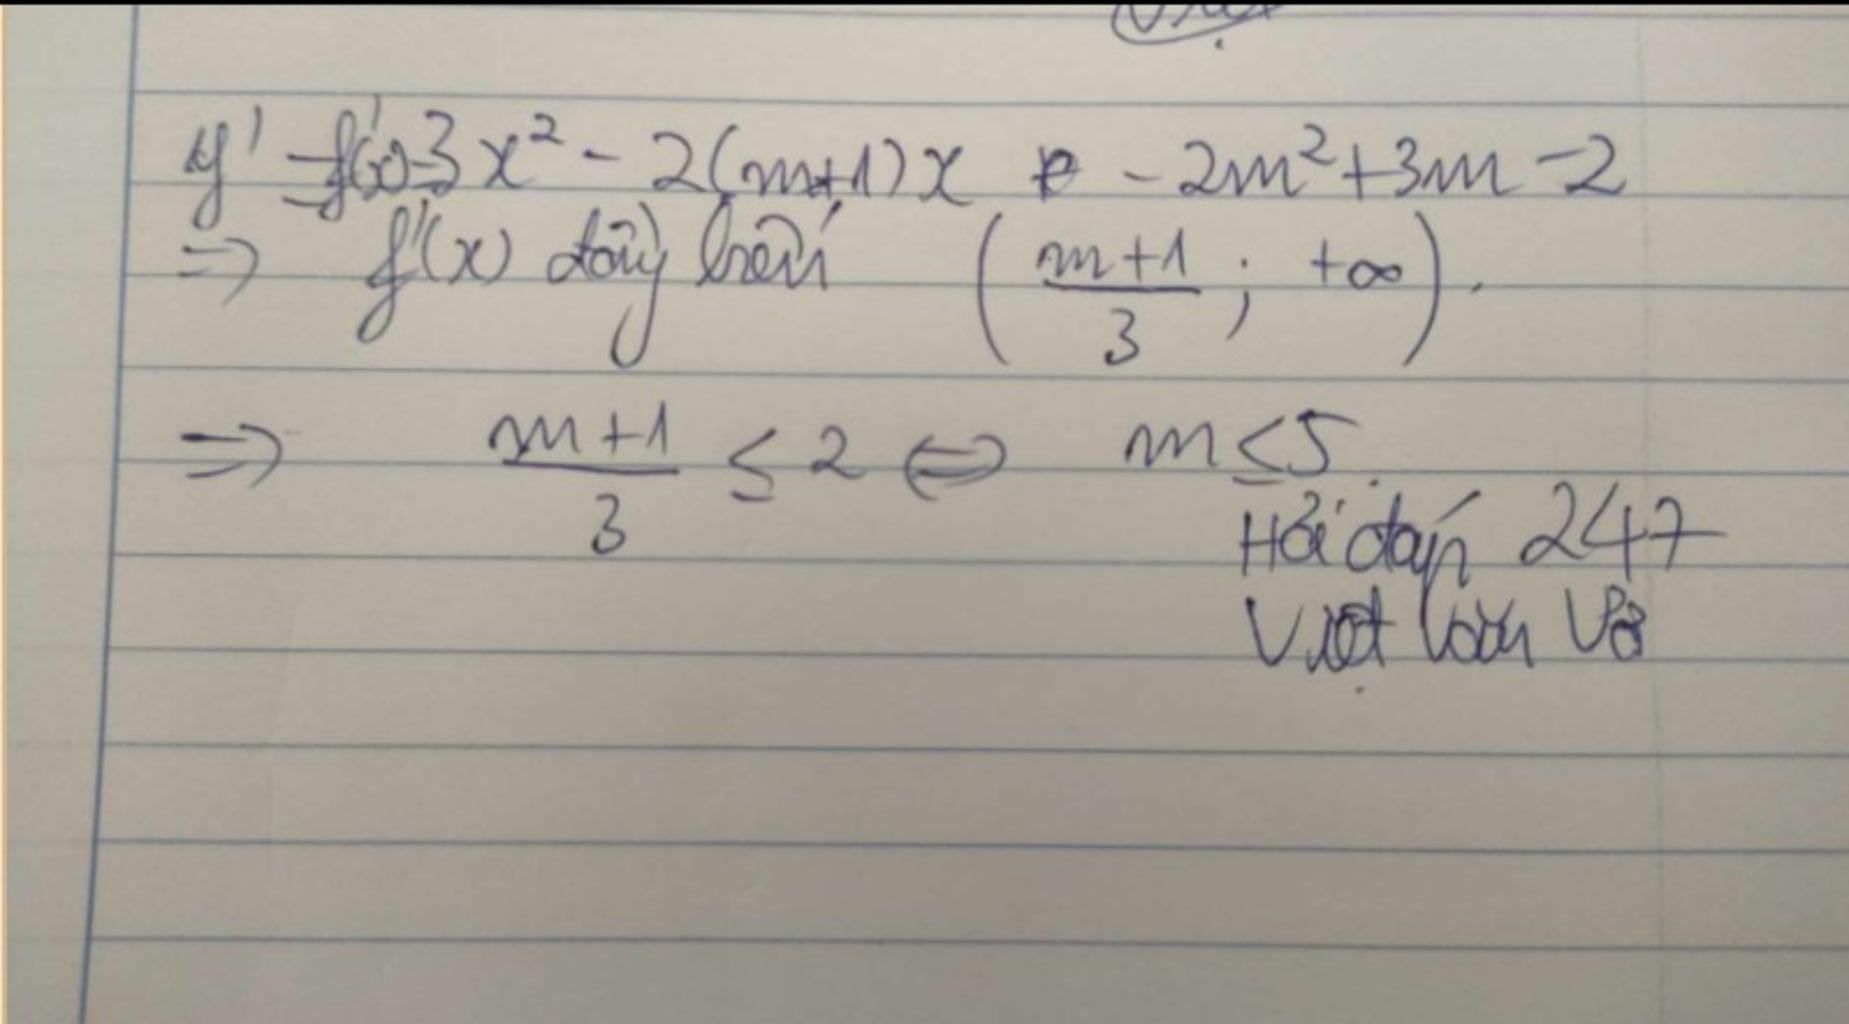 y' = f'(x) = 3x² - 2(m+1)x - 2m² + 3m - 2
=> f'(x) đồng biến (m+1/3 ; +∞).
=> m+1/3 ≤ 2 <=> m ≤ 5.
Hỏi đáp 247
Việt Vở